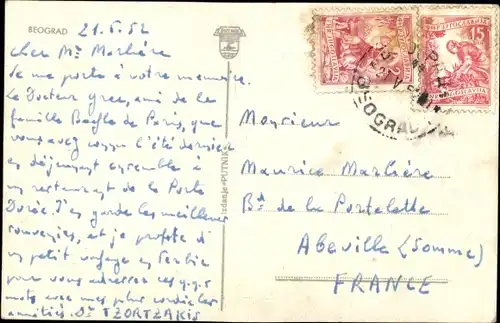 BEOGRAD
21.5.52
Cher Mr Marlière
Je me porte à votre memoire.
Le Docteur grec, ami de la
famille de Paris, que
vous avez connu l'été dernier
en déjeunant ensemble à
un restaurant de la Porte
Dorée. J'en garde les meilleurs
souvenirs, et je profite d'
un petit voyage en Serbie
pour vous adresser ces q.q.s
mots avec mes plus cordiales
amitiés. Dr TZORTZAKIS
Izdanje »PUTNIK«
15
BEOGRAD
Monsieur
Maurice Marlière
Bd de la Portelette
Abeville (Somme)
FRANCE